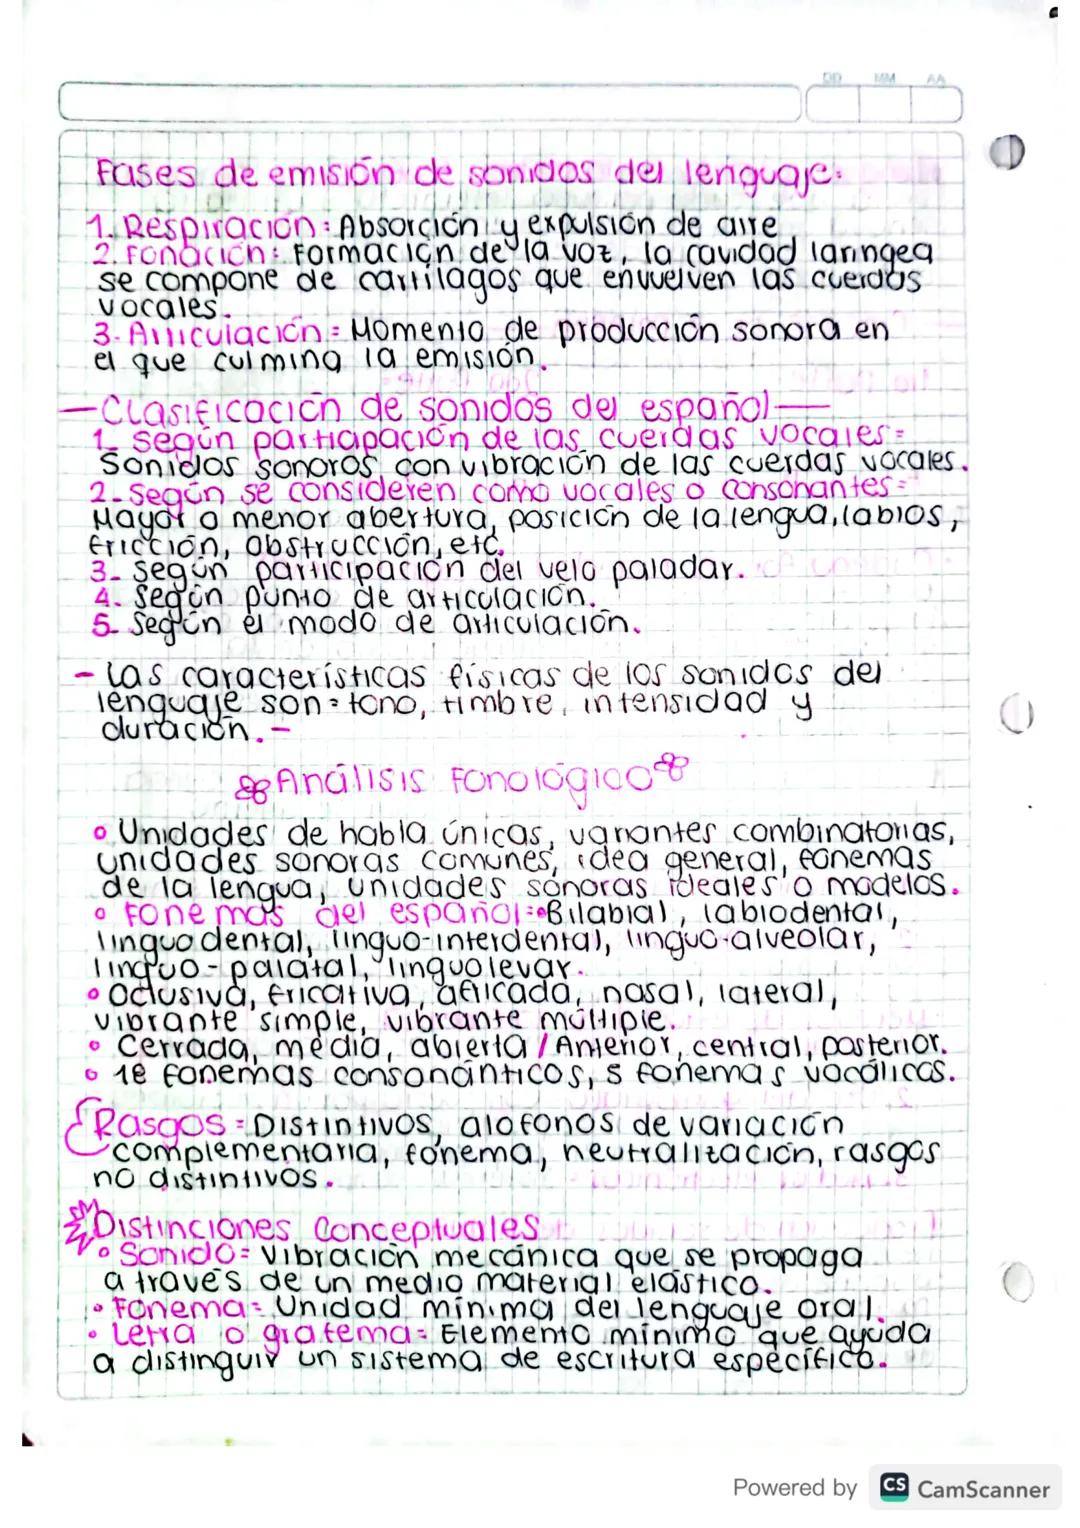 DD MM AA
Fases de emisión de sonidos del lenguaje:
1. Respiración: Absorción y expulsión de aire
2. Fonación: Formación de la voz, la cavidad laringea
se compone de cartílagos que envuelven las cuerdas
vocales.
3. Articulación: Momento de producción sonora en
el que culmina la emisión.
—Clasificación de sonidos del español—
1. Según participación de las cuerdas vocales:
Sonidos sonoros con vibración de las cuerdas vocales.
2. Según se consideren como vocales o consonantes:
Mayor o menor abertura, posición de la lengua, labios,
fricción, obstrucción, etc.
3. Según participación del velo paladar.
4. Según punto de articulación.
5. Según el modo de articulación.
- Las características físicas de los sonidos del
lenguaje son: tono, timbre, intensidad y
duración.-
Análisis Fonológico
• Unidades de habla únicas, variantes combinatorias,
unidades sonoras comunes, idea general, fonemas
de la lengua, unidades sonoras ideales o modelos.
• Fonemas del español: •Bilabial, labiodental,
linguodental, linguo-interdental, linguo-alveolar,
linguo-palatal, linguolevar.
• Oclusiva, fricativa, africada, nasal, lateral,
vibrante simple, vibrante múltiple.
• Cerrada, media, abierta / Anterior, central, posterior.
• 18 fonemas consonánticos, 5 fonemas vocálicos.
Rasgos: Distintivos, alofonos de variación
complementaria, fonema, neutralización, rasgos
no distintivos.
Distinciones Conceptuales
• Sonido: Vibración mecánica que se propaga
a través de un medio material elástico.
• Fonema: Unidad mínima del lenguaje oral.
• Letra o grafema: Elemento mínimo que ayuda
a distinguir un sistema de escritura específico.
Powered by CS CamScanner